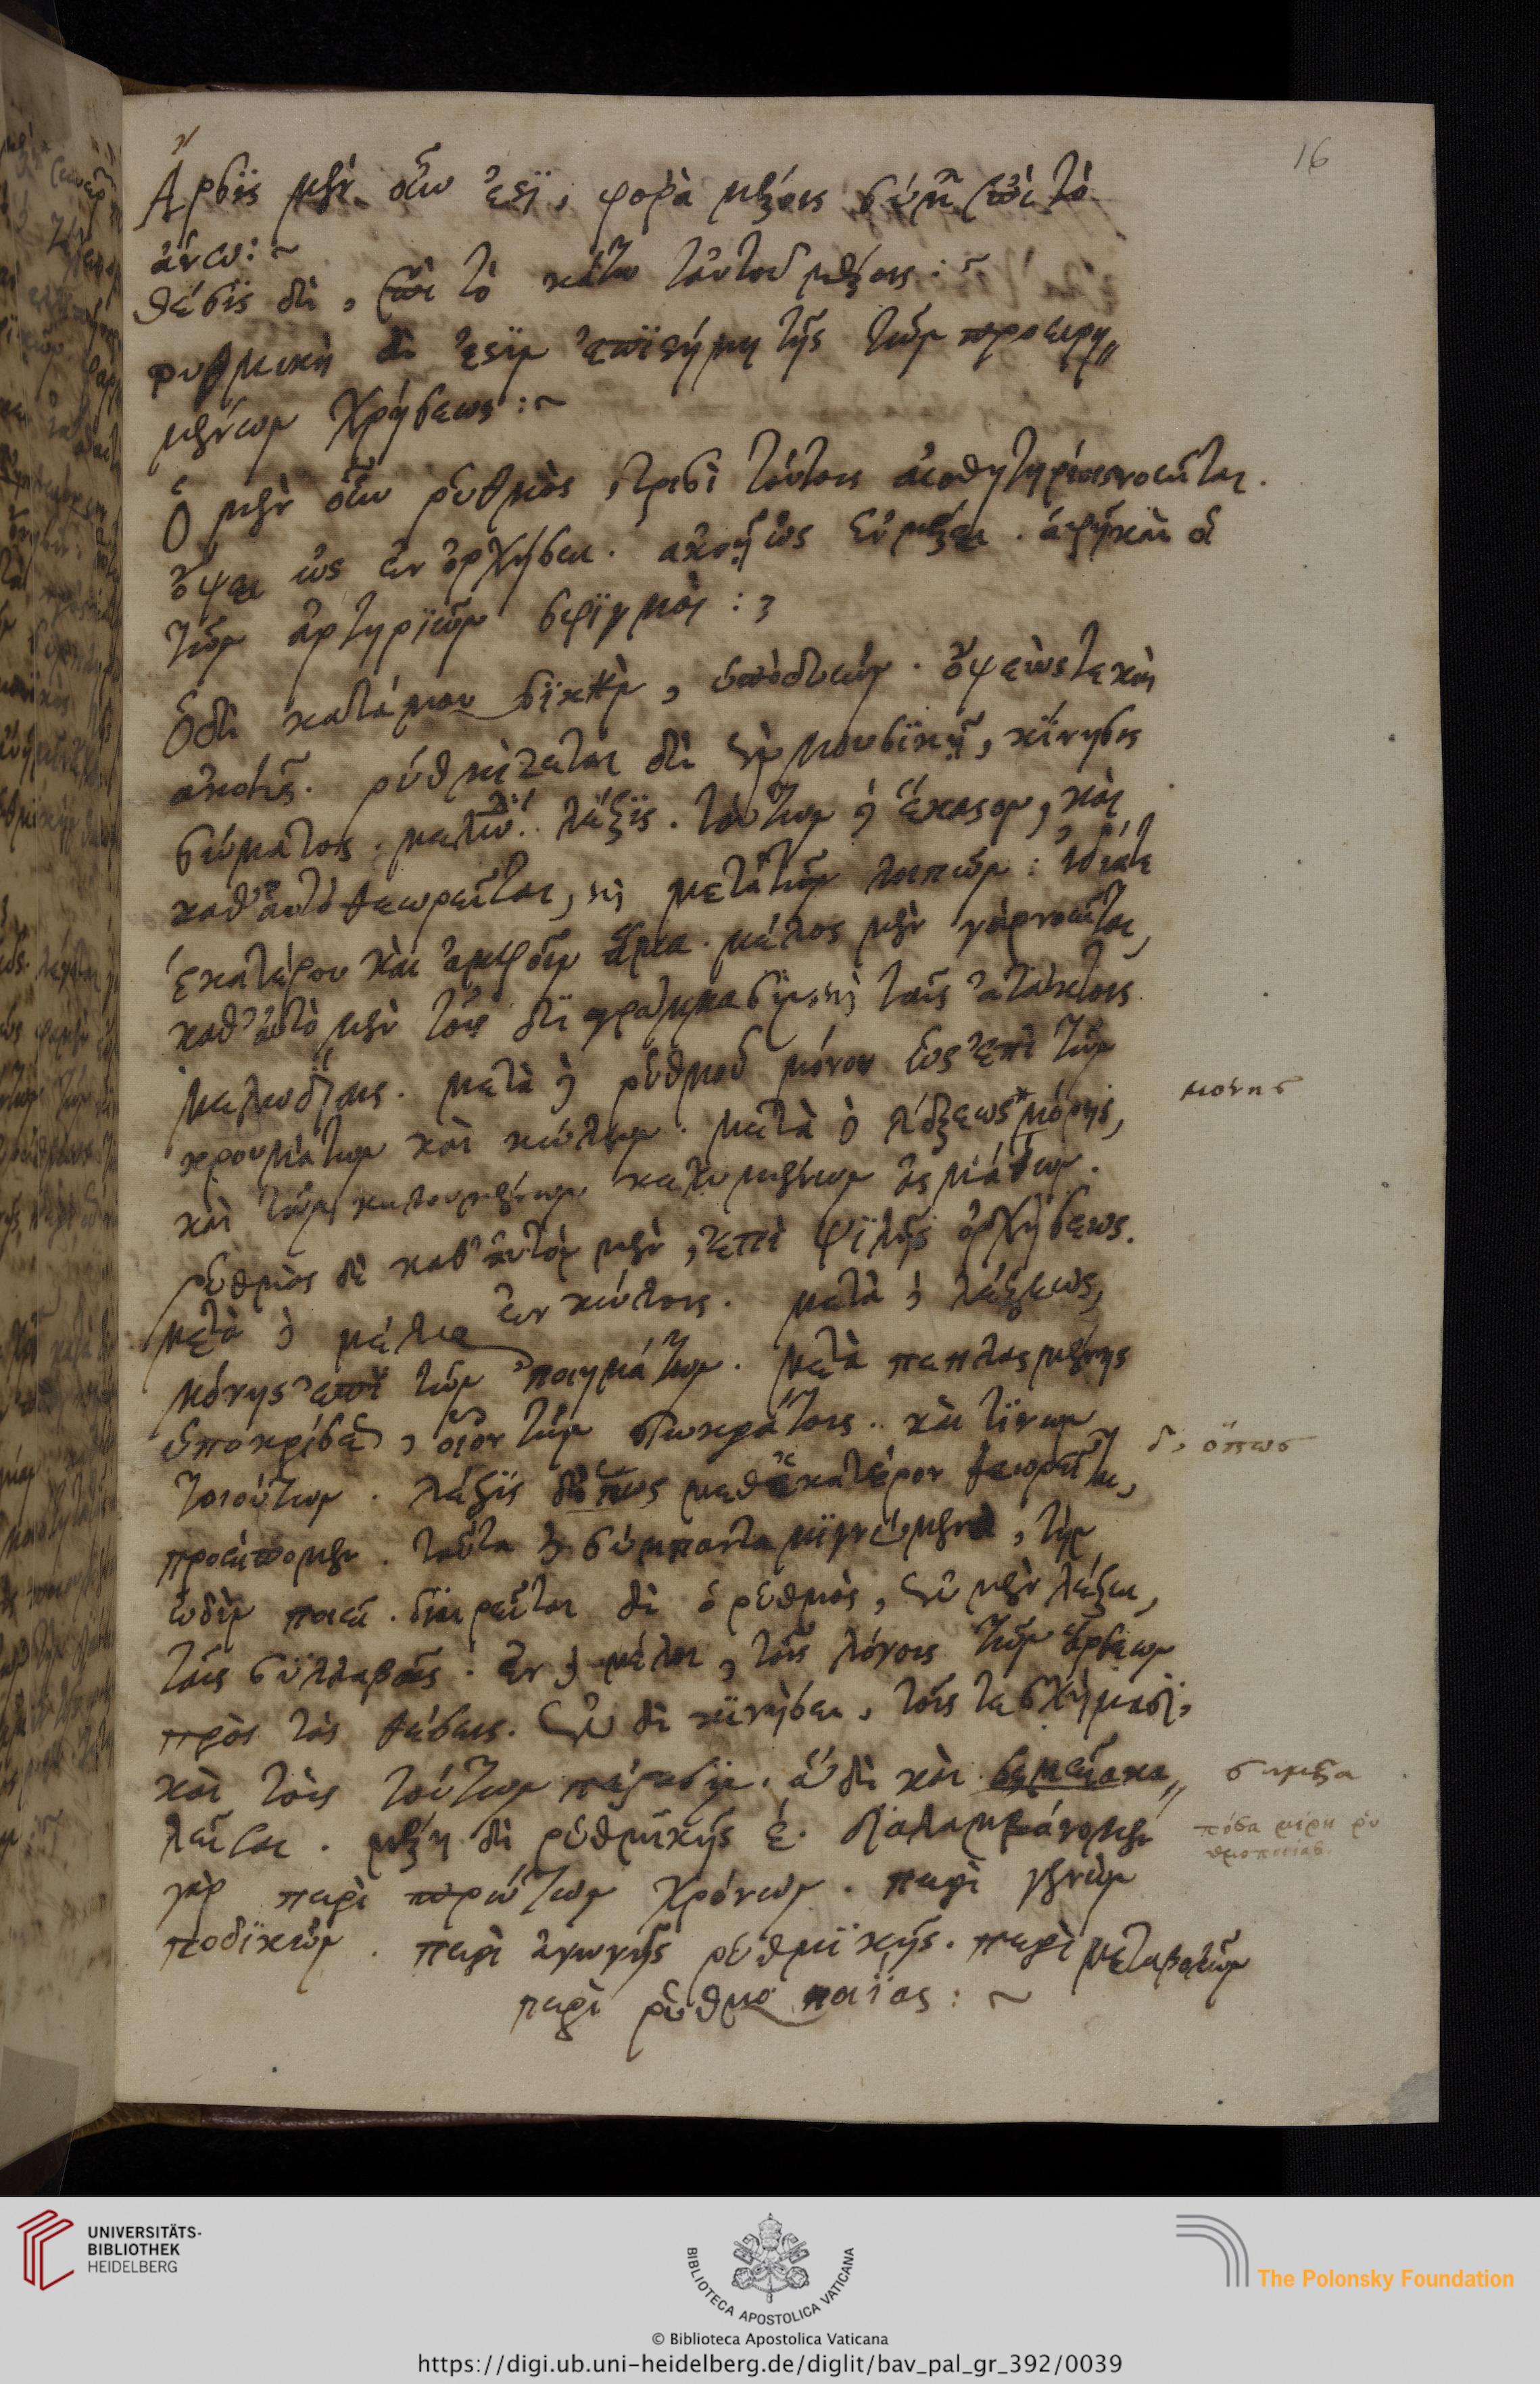 16
Ἄρσϊς μὲν οὖν ἐστϊ, φορὰ μέρους σώματος ἐπὶ τὸ
ἄνω:~
θέσϊς δὲ, ἐπὶ τὸ κάτω ταὐτοῦ μέρους:~
ρυθμικὴ δὲ ἐστϊν ἐπϊστήμη τῆς τῶν προειρη〃
μένων χρήσεως:~
Ὁ μὲν οὖν ρυθμὸς, τρισὶ τούτοις αἰσθητηρίοις νοεῖται.
ὄψει ὡς ἐν ὀρχήσει. ἀκοῆ ὡς ἐν μέλει. ἁφῆ ὡς οἱ
τῶν ἀρτηρϊῶν σφϊγμοὶ:
Ὁ δὲ κατὰ μουσϊκὴν, ὑπὸ δυεῖν. ὄψεώς τε καὶ
ἀκοῆς. ρυθμίζεται δὲ ἐν μουσϊκῇ, κϊνησις
σώματος. μελω. λέξϊς. τούτων δὲ ἕκαστον, καὶ
καθ' αὑτὸ θεωρεῖται, καὶ μετὰ τῶν λοιπῶν: ἰδία τε
ἑκατέρου καὶ ἀμφοῖν ἅμα. μέλος μὲν γὰρ νοεῖται,
καθ' αὑτὸ μὲν τοῖς δϊαγράμμασϊν, καὶ ταῖς ἀτάκτοις
μελωδίαις. μετὰ δὲ ρυθμοῦ μόνου ὡς ἐπὶ τῶν
κρουμάτων καὶ κώλων. μετὰ δὲ λέξεως* μόνης,
καὶ τῶν καλουμένων κεχυμένων ᾀσμάτων.
ρυθμὸς δὲ καθ' αὑτὸν μὲν, ἐπὶ ψϊλῆς ὀρχήσεως.
μετὰ δὲ μέλους ἐν κώλοις. μετὰ δὲ λέξεως,
μόνης ἐπὶ τῶν ποιημάτων. μετὰ πεπλασμένης
ὑποκρίσεως, οἷον τῶν σωκράτους. καὶ τϊνων
τοιούτων. λέξϊς δ' ὅπως μεθ' ἑκατέρου θεωρεῖται,
προείπομεν. ταῦτα δὲ σύμπαντα μϊγνύμενα, τὴν
ὠδὴν ποιεῖ. διαιρεῖται δὲ ὁ ρυθμὸς, ἐν μὲν λέξει,
ταῖς συλλαβαῖς. ἐν δὲ μέλει, τοῖς λόγοις τῶν ἄρσεων
πρὸς τὰς θέσεις. ἐν δὲ κϊνήσει, τοῖς τε σχήμασϊ,
καὶ τοῖς τούτων πέρασϊν. ἃ δὲ καὶ σημεῖα κα〃
λεῖται. μέρη δὲ ρυθμϊκῆς ε΄. διαλαμβάνομεν
γὰρ περὶ πρώτων χρόνων. περὶ γενῶν
ποδϊκῶν. περὶ ἀγωγῆς ρυθμϊκῆς. περὶ μεταβολῶν
περὶ ρυθμοποιΐας:~
μόνης
δ, ὅπως
σημεῖα
πόσα μέρη ρυ
θμοποιίας.
UNIVERSITÄTS-
BIBLIOTHEK
HEIDELBERG
BIBLIOTECA APOSTOLICA VATICANA
The Polonsky Foundation
© Biblioteca Apostolica Vaticana
https://digi.ub.uni-heidelberg.de/diglit/bav_pal_gr_392/0039